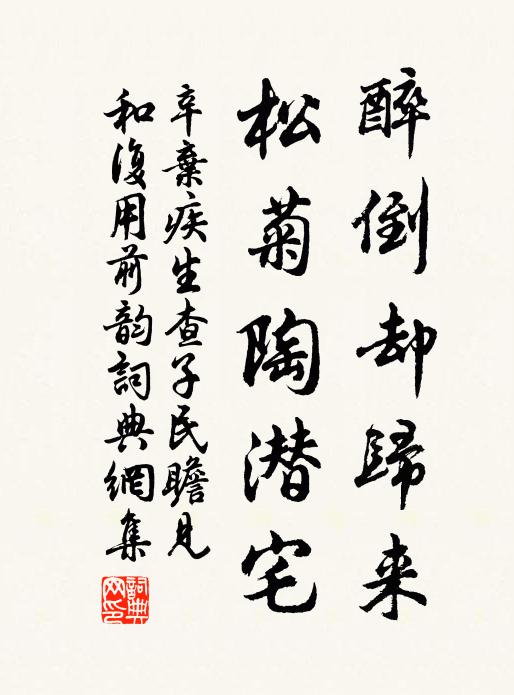 醉倒却歸来
松菊陶潜宅
辛棄疾生查子民瞻見
和復用前韵詞典網集
詞典网印